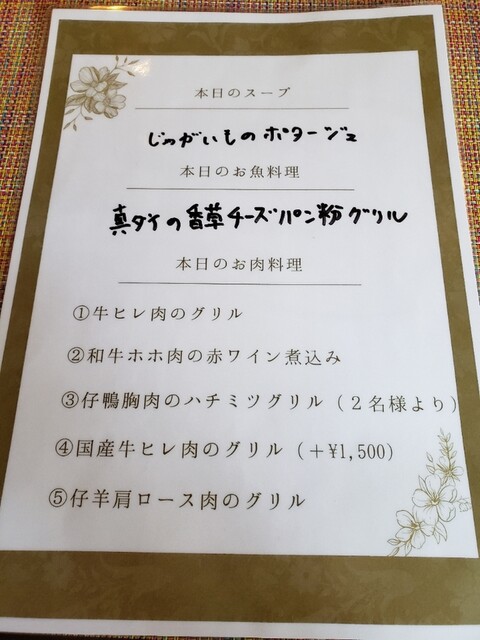 本日のスープ
じゃがいものポタージュ
本日のお魚料理
真ダイの香草チーズパン粉グリル
本日のお肉料理
①牛ヒレ肉のグリル
②和牛ホホ肉の赤ワイン煮込み
③仔鴨胸肉のハチミツグリル（２名様より）
④国産牛ヒレ肉のグリル（＋¥1,500）
⑤仔羊肩ロース肉のグリル